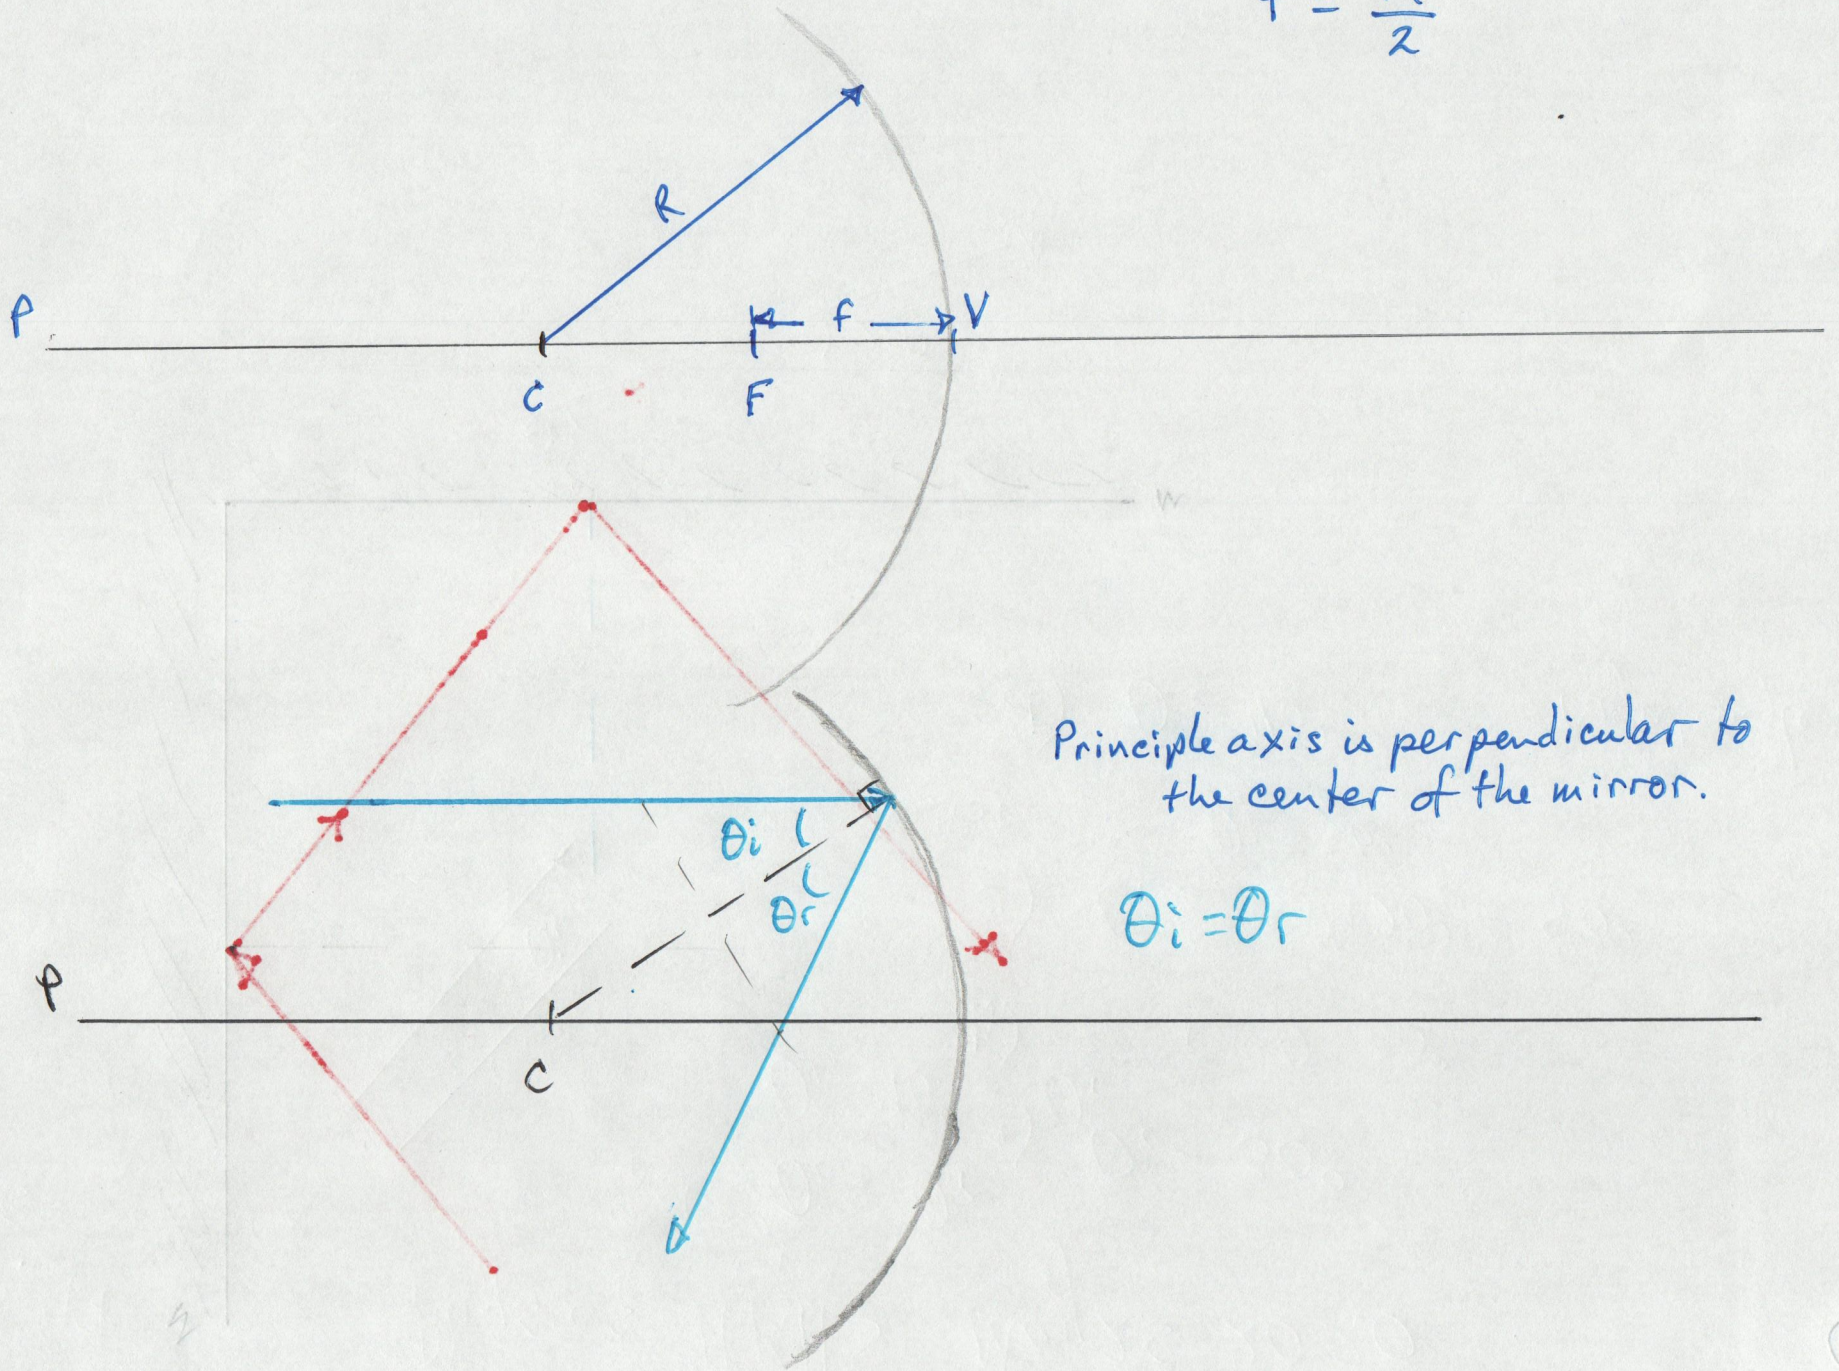 2
R
P
f
V
C
F
Principle axis is perpendicular to
the center of the mirror.
θi
θr
θi = θr
P
C